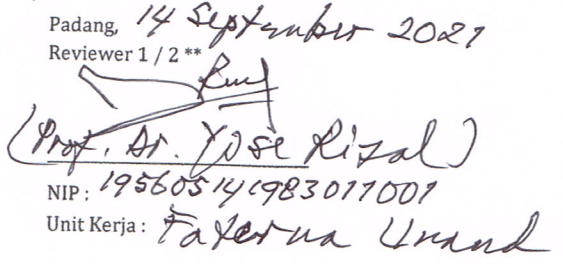 Padang, 14 September 2021
Reviewer 1 / 2 **
(Prof. Dr. Yose Rizal)
NIP : 195605141983011001
Unit Kerja : Faterna Unand